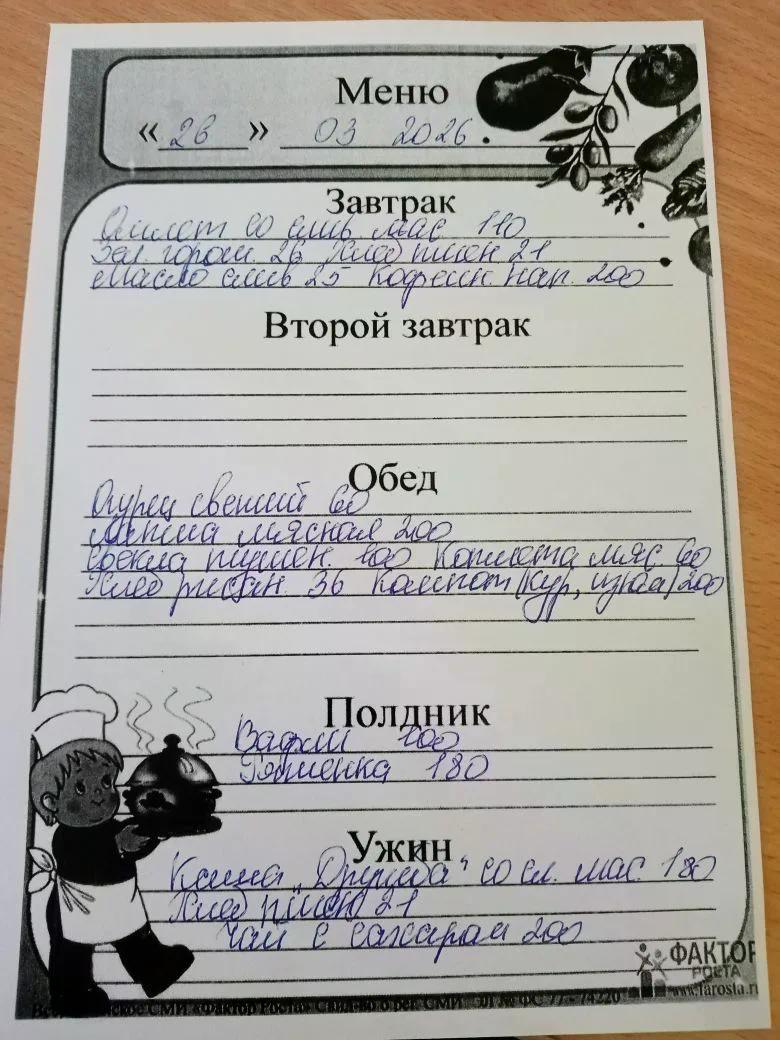 Меню
« 26 » 03 2026.
Завтрак
Омлет со слив мас. 110
Зел. горош. 26 Хлеб пшен 21
Масло слив 25 Кофейн нап. 200
Второй завтрак
Обед
Огурец свежий 60
Лапша мясная 200
Свекла тушен. 100 Котлета мяс. 60
Хлеб ржан. 36 Компот (кур, изюм) 200
Полдник
Вафли 100
Ряженка 180
Ужин
Каша „Дружба" со сл. мас. 180
Хлеб пшен 21
Чай с сахаром 200
ФАКТОР
РОСТА
www.farosta.ru
СМИ «Фактор Роста» СМИ ЭЛ № ФС 77 - 74220